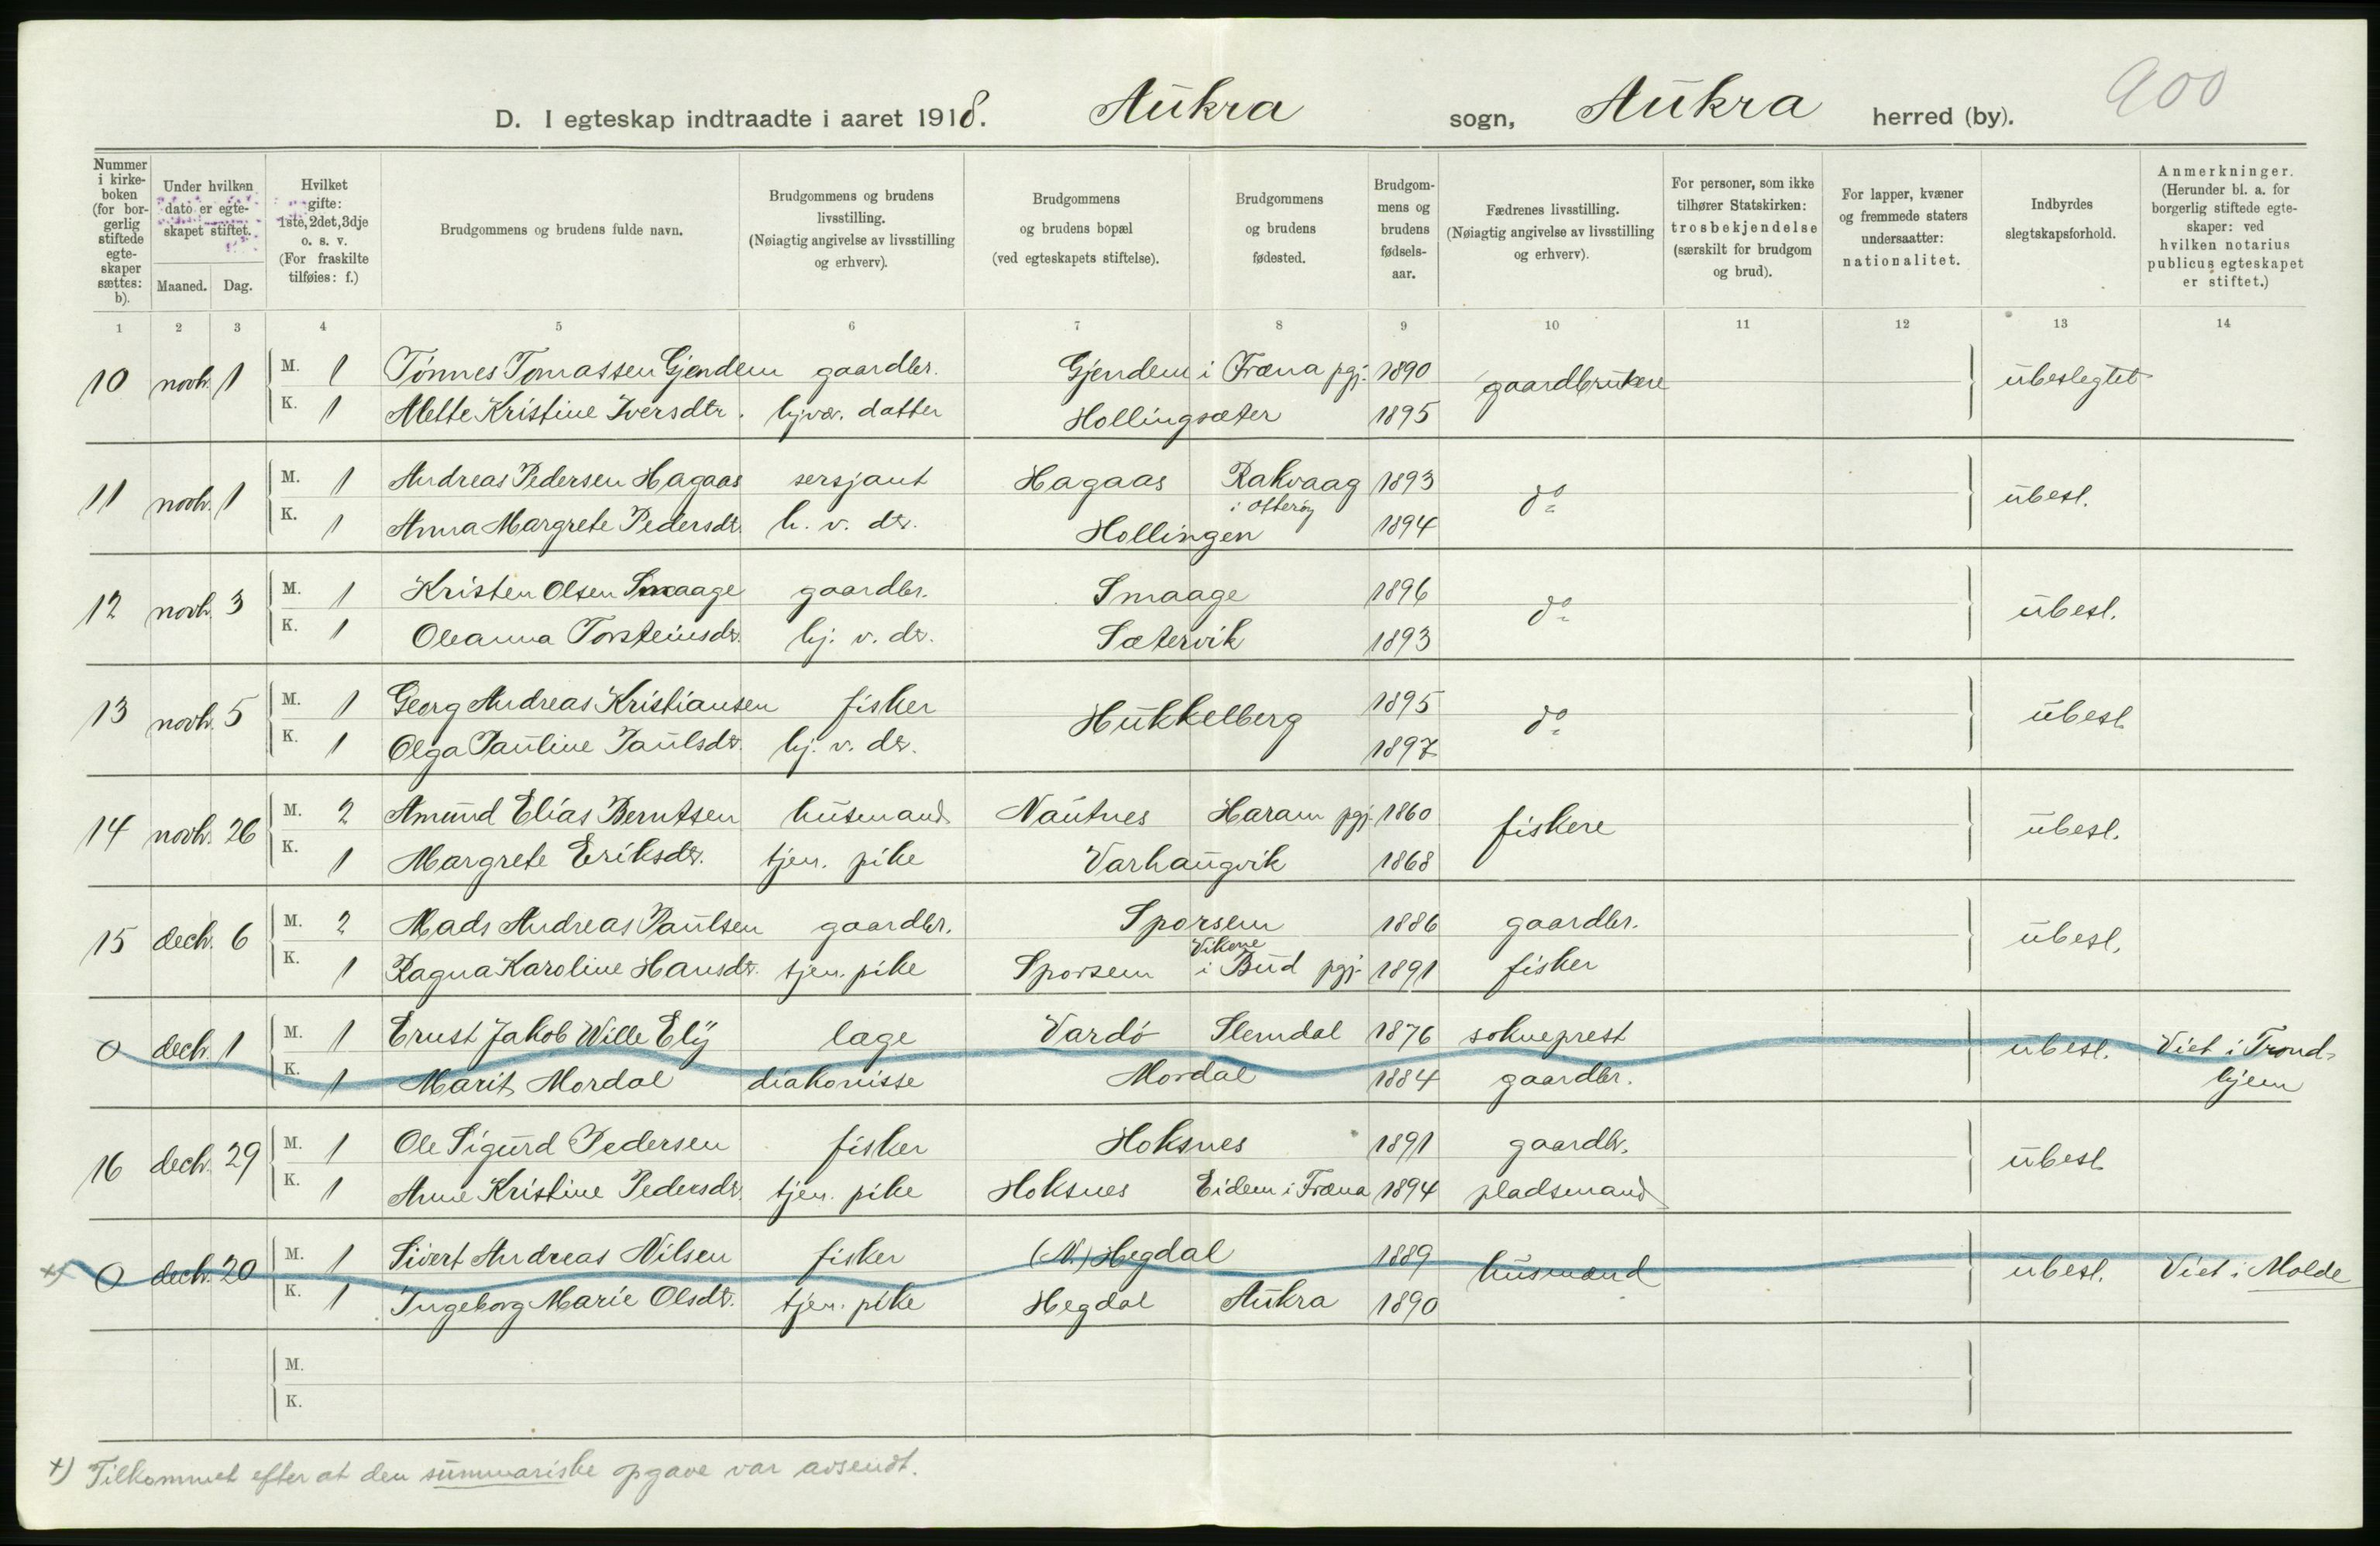 900
D. I egteskap indtraadte i aaret 1918. Aukra sogn, Aukra herred (by).
Nummer i kirke-boken (for bor-gerlig stiftede egte-skaper sættes: b).
Under hvilken dato er egte-skapet stiftet.
Maaned. Dag.
Hvilket gifte: 1ste, 2det, 3dje o. s. v. (For fraskilte tilføies: f.)
Brudgommens og brudens fulde navn.
Brudgommens og brudens livsstilling. (Nøiagtig angivelse av livsstilling og erhverv).
Brudgommens og brudens bopæl (ved egteskapets stiftelse).
Brudgommens og brudens fødested.
Brudgom-mens og brudens fødsels-aar.
Fædrenes livsstilling. (Nøiagtig angivelse av livsstilling og erhverv).
For personer, som ikke tilhører Statskirken: trosbekjendelse (særskilt for brudgom og brud).
For lapper, kvæner og fremmede staters undersaatter: nationalitet.
Indbyrdes slegtskapsforhold.
Anmerkninger. (Herunder bl. a. for borgerlig stiftede egte-skaper: ved hvilken notarius publicus egteskapet er stiftet.)
1 2 3 4 5 6 7 8 9 10 11 12 13 14
10 novb. 1 M. 1 Tønnes Tomassen Gjendem gaardbr. Gjendem i Fræna pgj. 1890 gaardbrukere ubeslegtet
K. 1 Mette Kristine Iversdtr. hjvær. datter Hollingsæter 1895
11 novb. 1 M. 1 Andreas Pedersen Hagaas sersjant Hagaas Rakvaag i Otterøy 1893 do ubesl.
K. 1 Anna Margrete Pedersdt. h. v. dtr. Hollingen 1894
12 novb. 3 M. 1 Kristen Olsen Smaage gaardbr. Smaage 1896 do ubesl.
K. 1 Oleanna Torsteinsdt. hj. v. dr. Sætervik 1893
13 novb. 5 M. 1 Georg Andreas Kristiansen fisker Hukkelberg 1895 do ubesl.
K. 1 Olga Pauline Paulsdt. hj. v. dr. 1897
14 novb. 26 M. 2 Amund Elias Berntsen husmand Nautnes Haram pgj. 1860 fiskere ubesl.
K. 1 Margrete Eriksdt. tjen. pike Varhaugvik 1868
15 decb. 6 M. 2 Mads Andreas Paulsen gaardbr. Sporsem 1886 gaardbr. ubesl.
K. 1 Ragna Karoline Hansdt. tjen. pike Sporsem Vikene i Bud pgj. 1891 fisker
0 decb. 1 M. 1 Ernst Jakob Wille Ely læge Vardø Slemdal 1876 sokneprest ubesl. Viet i Trond-
K. 1 Marit Mordal diakonisse Mordal 1884 gaardbr. hjem
16 decb. 29 M. 1 Ole Sigurd Pedersen fisker Hoksnes 1891 gaardbr. ubesl.
K. 1 Anne Kristine Pedersdt. tjen. pike Hoksnes Eidem i Fræna 1894 pladsmand
+) 0 decb. 20 M. 1 Sivert Andreas Nilsen fisker (N.) Hegdal 1889 husmænd ubesl. Viet i Molde
K. 1 Ingeborg Marie Olsdt. tjen. pike Hegdal Aukra 1890
M.
K.
+) Tilkommet efter at den summariske opgave var avsendt.